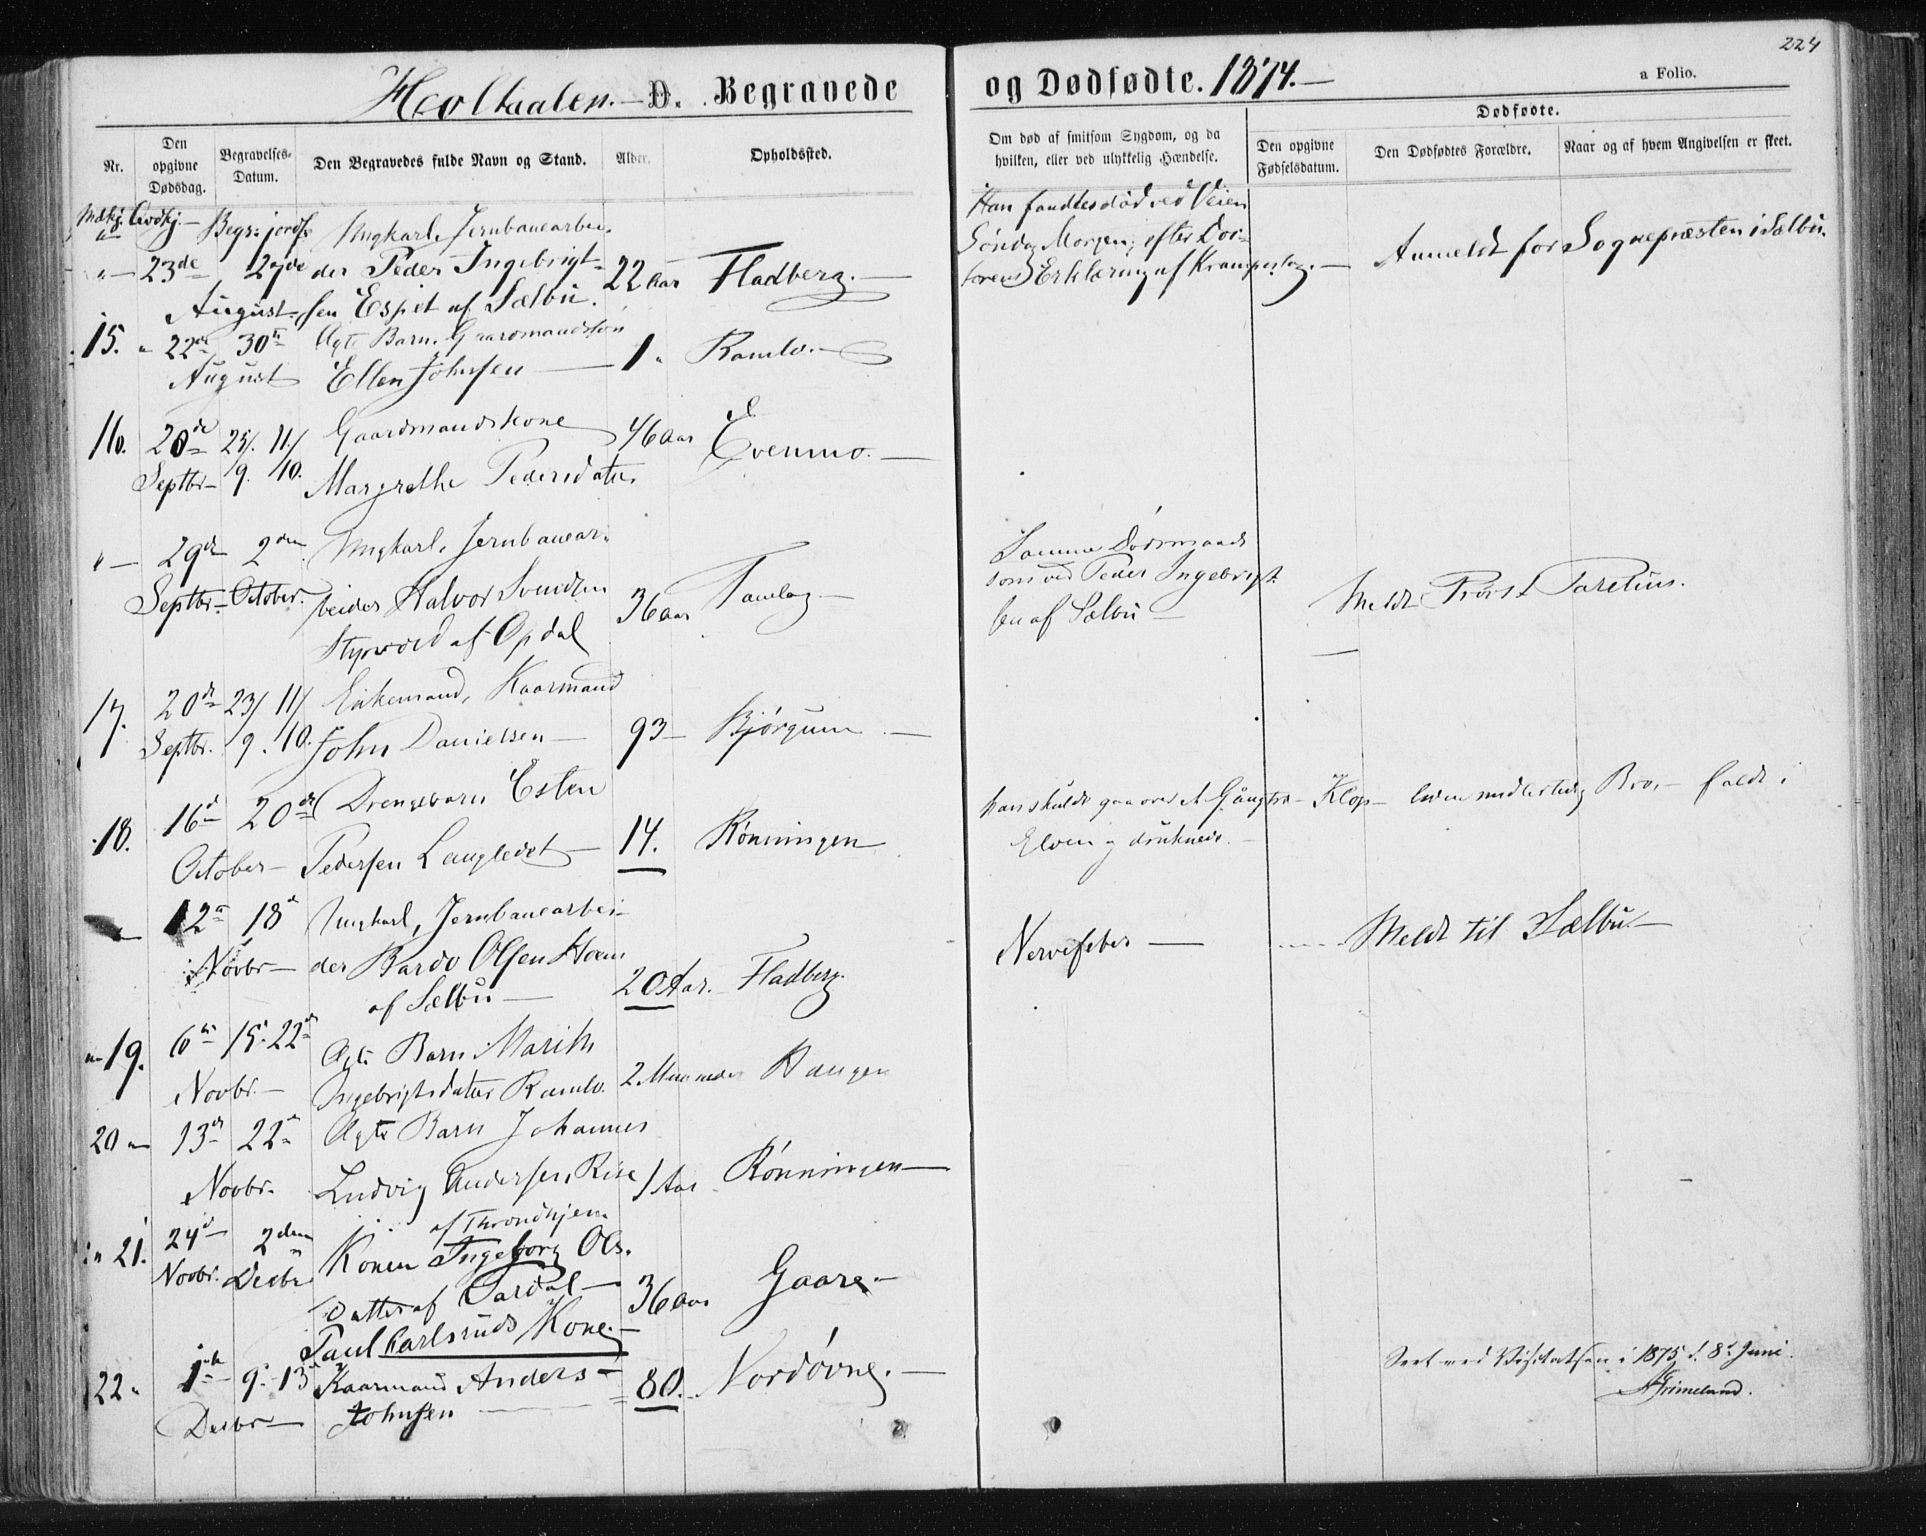 224
Holtaalen. — D. Begravede og Dødfødte. 1874. — a Folio.
Nr.
Den opgivne Dødsdag.
Begravelses-Datum.
Den Begravedes fulde Navn og Stand.
Alder.
Opholdssted.
Om død af smitsom Sygdom, og da hvilken, eller ved ulykkelig Hændelse.
Dødfødte.
Den opgivne Fødselsdatum.
Den Dødfødtes Forældre.
Naar og af hvem Angivelsen er skeet.
Begr: jordf. Ungkarl, Jernbanearbei-
" — 23de 27de der Peder Ingebrigt- 22 aar Fladberg. —
August sen Espet af Sælbu.
Han fandtes død ved Veien
Søndag Morgen, efter Doc-
torens Erklæring af Krampeslag. — Anmeldt for Sognepræsten i Sælbu.
15. 22de 30te Ægte Barn. Gaardmandssøn
August Ellen Johnsen — 1 " Ramlo. —
16. 20de 25/ 11/ Gaardmandskone 46 aar Evenmo. —
Septbr 9. 10. Margrethe Pedersdatter
" — 29de 2den Ungkarl, Jernbanear-
Septbr — October. beider Halvor Svendsen 36 aar Tamlag —
Styrvold af Opdal
Samme Dødsmaade
som ved Peder Ingebrigt-
sen af Sælbu —
Meldt Provst Parelius.
17. 20de 23/ 11/ Enkemand, Kaarmand
Septbr. 9. 10. John Danielsen — 93 — Bjørgum —
18. 16de 20de Drengebarn Esten
October — Pedersen Langledet — 14. Rønningen
han skulde gaa over et Gangtræ — Klop — liden midlertidig Bro, — faldt i
Elven og druknede. —
12te 18de Ungkarl, Jernbanearbei-
Novbr — der Bardo Olsen Hoem 20 Aar. — Fladberg.
af Sælbu —
Nervefeber — Meldt til Sælbu —
19. 6te 15. 22de Ægte Barn Marith
Novbr. — Ingebrigtsdatter Ramlo. 2 Maaneder Haugen
20 13de 22de Ægte Barn Johannes
Novbr. Ludvig Andersen Rise 1 Aar Rønningen —
af Throndhjem
21. 24de 2den Konen Ingeborg Ols-
Novbr. Decbr datter af 36 aar Gaare —
Paul Karlsruds Kone —
22 " 1ste 9. 13 Kaarmand Anders 80. — Nordøvne. —
Decbr — Johnsen —
Seet ved Visitatsen i 1875 d. 8de Juni.
Grimelund.